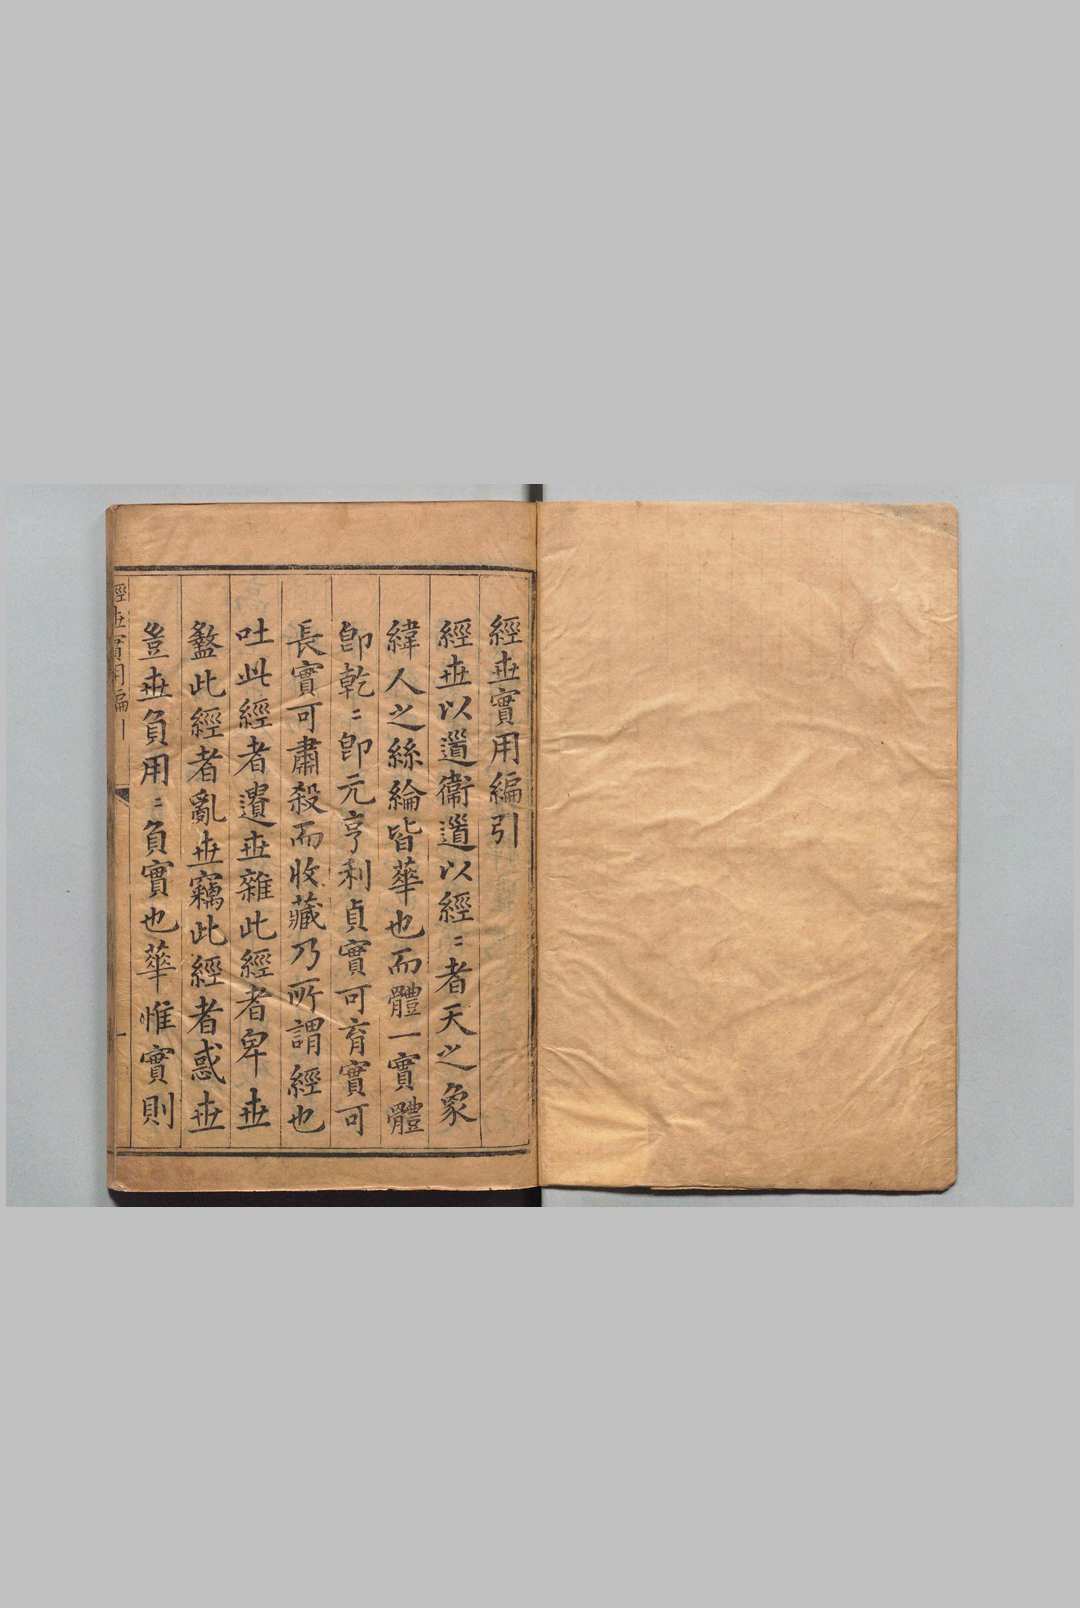 經世實用編引
經世以道衛道以經〻者天之象
緯人之絲綸皆華也而體一實體
卽乾〻卽元亨利貞實可育實可
長實可肅殺而收藏乃所謂經也
吐此經者遺世雜此經者卑世
盭此經者亂世竊此經者惑世
豈世負用〻負實也華惟實則
經世實用編引
一